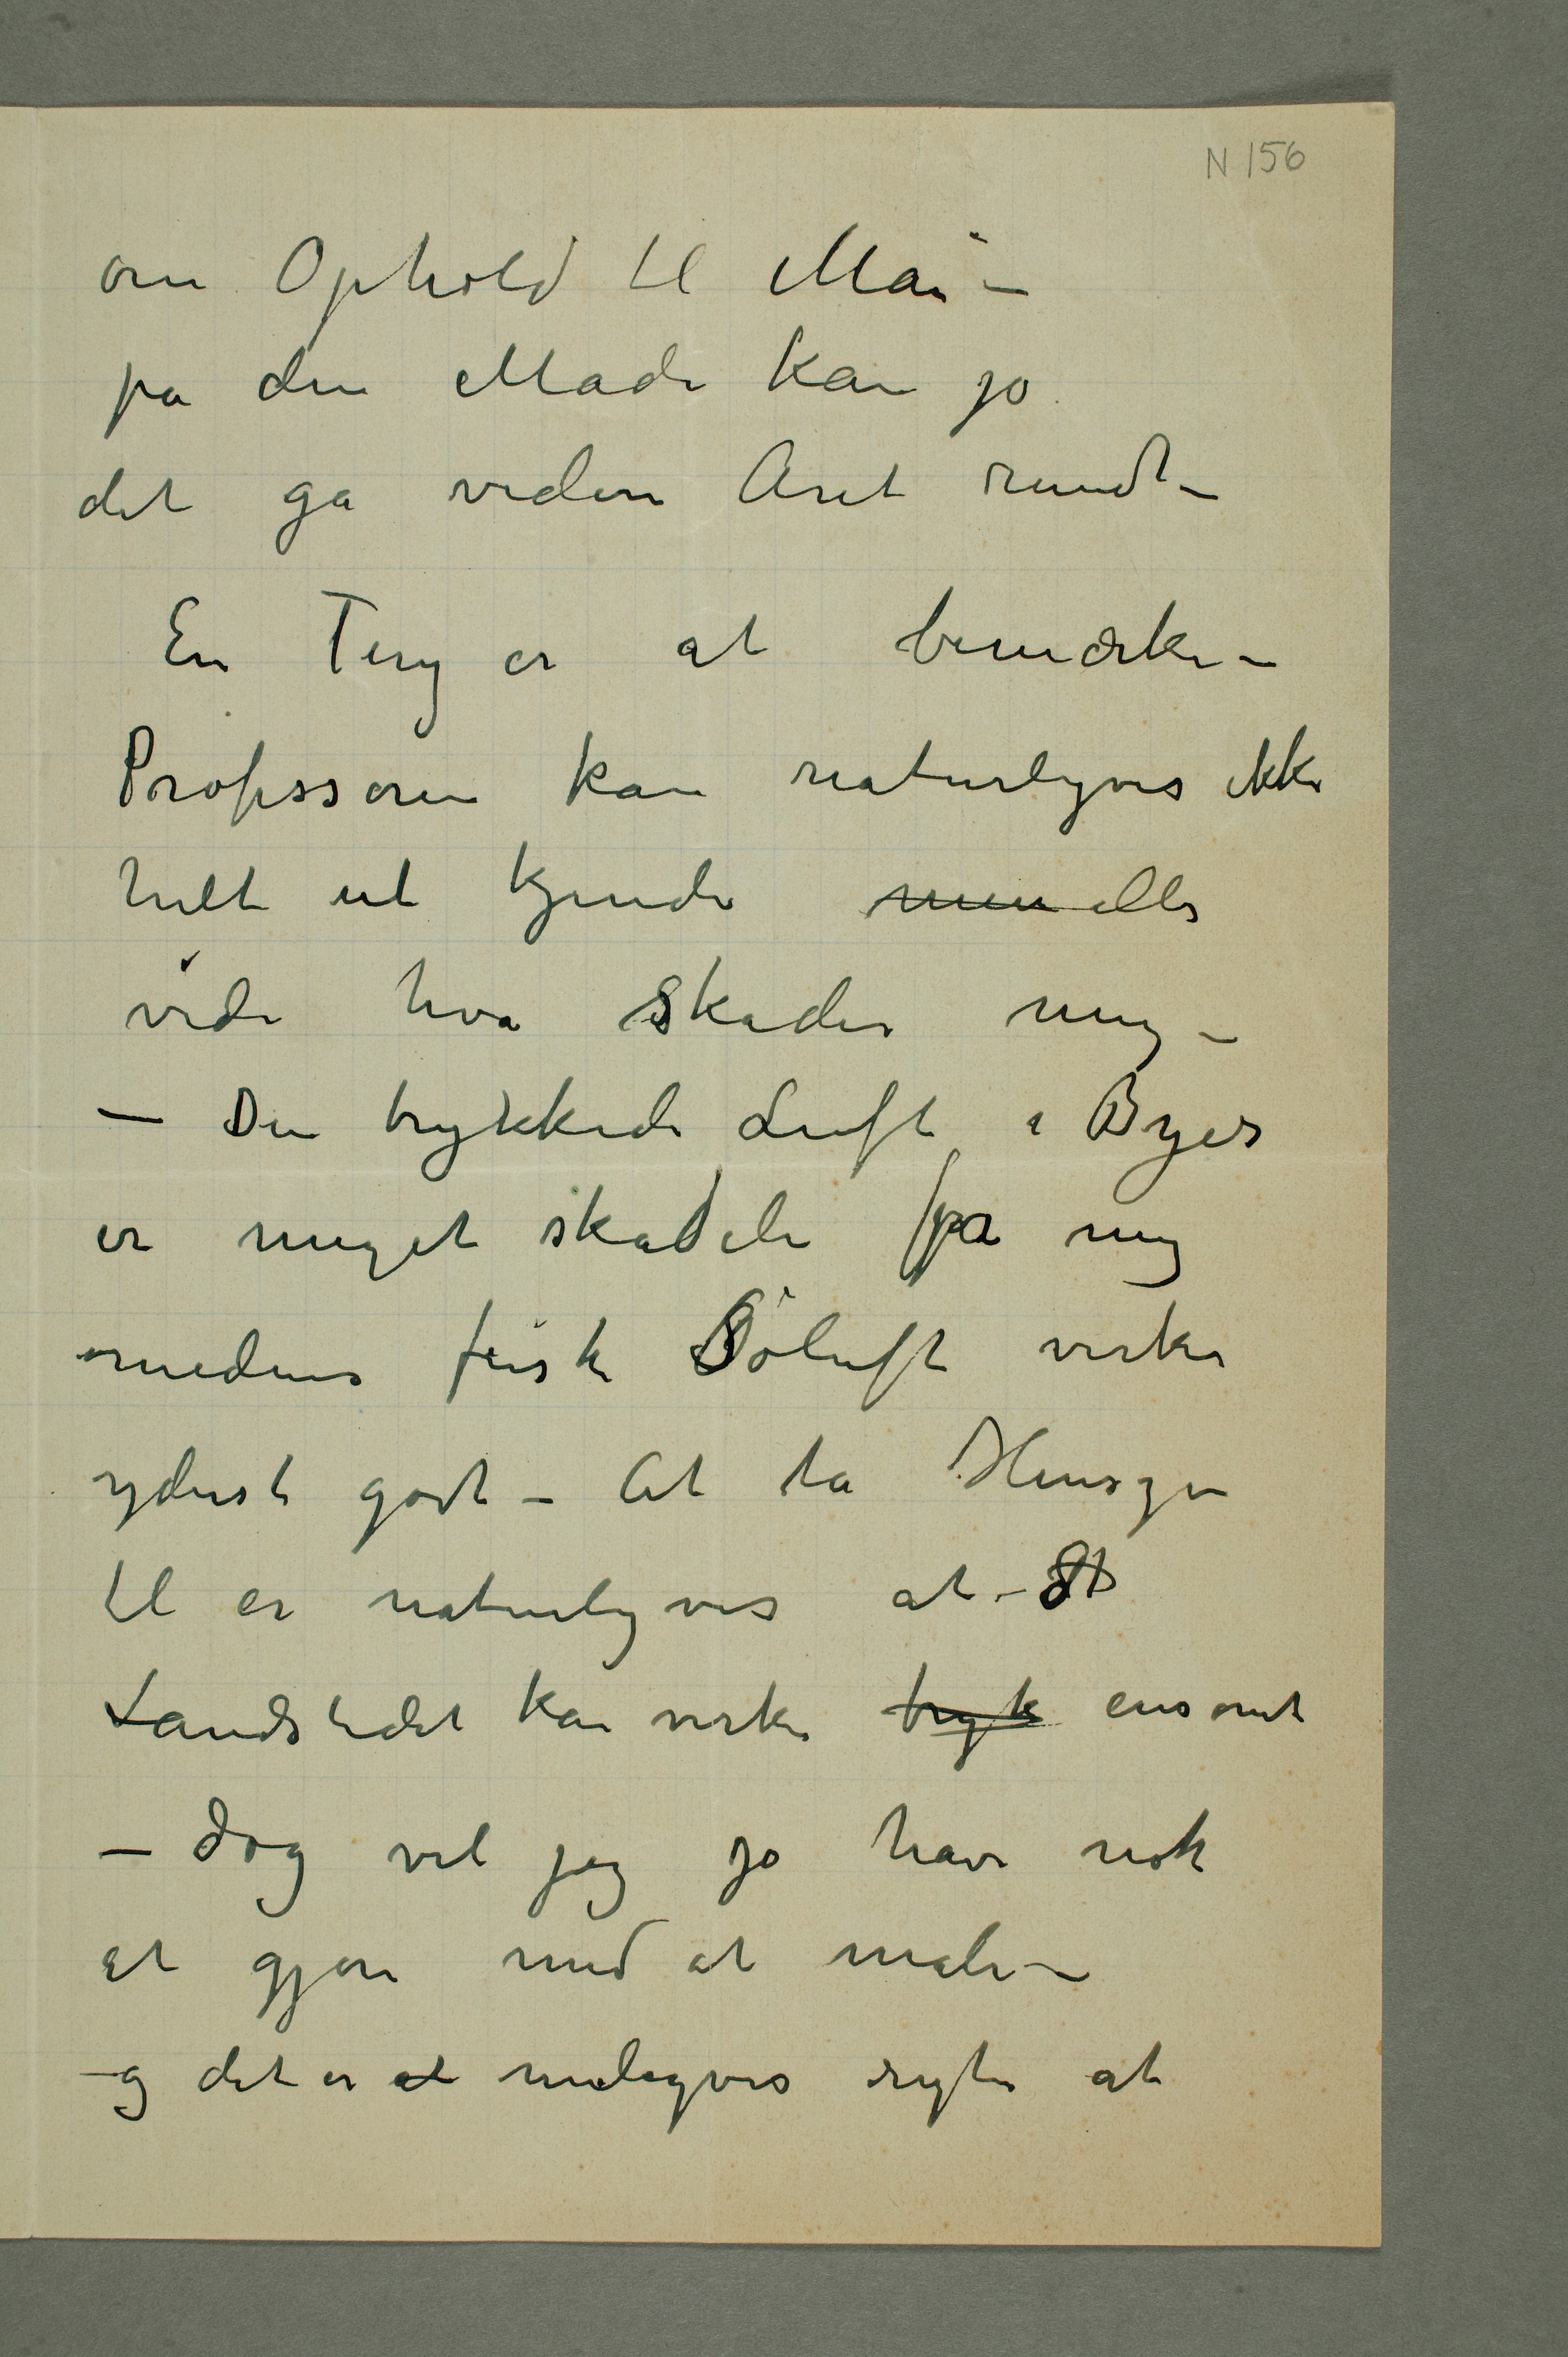 N 156
om Ophold til Mai –
på den Måde kan jo
det gå videre Året rundt –
En Ting er at bemærke –
Professoren kan naturligvis ikke
helt ut kjende men eller
vide hva skader mig –
– Den trykkede Luft i Byer
er meget skadeli for mig
medens frisk Søluft virker
yderst godt – At ta Hensyn
til er naturligvis at – St
Landstedet kan virke tryk ensomt
– dog vil jeg jo have nok
at gjøre med at male –
og det er at muligvis rygte at